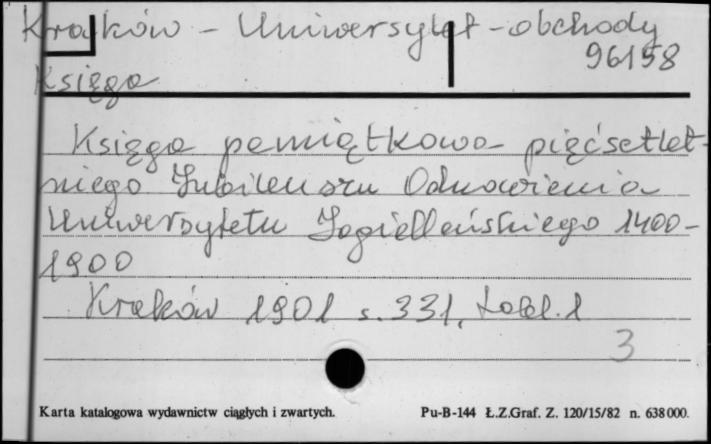 Kraków - Uniwersytet - obchody
96158
Księga
Księga pamiątkowa pięćsetlet-
niego Jubileuszu Odnowienia
Uniwersytetu Jagiellońskiego 1400-
1900
Kraków 1901 s. 331, tabl. 1
3
Karta katalogowa wydawnictw ciągłych i zwartych.
Pu-B-144 Ł.Z.Graf. Z. 120/15/82 n. 638000.